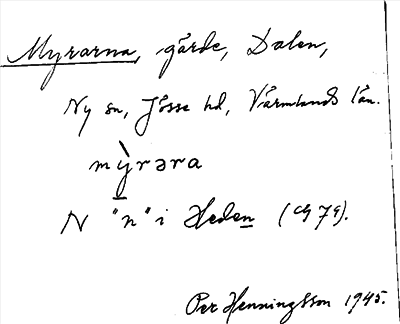 Myrarna, gärde, Dalen,
Ny sn, Jösse hd, Värmlands län.
mỳrəra
N "n" i Heden (CY 79).
Per Henningsson 1945.